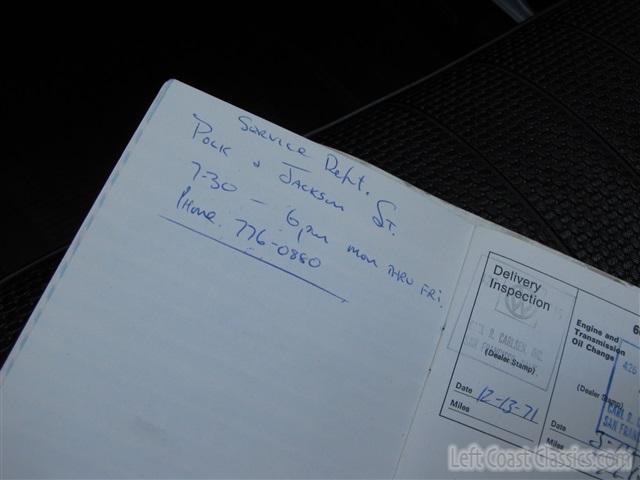 Service Dept.
Polk & Jackson St.
7-30 - 6 pm mon THRU FRI.
Phone. 776-0880
Delivery
Inspection
CARL R. CARLSEN, INC.
SAN FRANCISCO
(Dealer Stamp)
Date 12-13-71
Miles
Engine and
Transmission
Oil Change
426
(Dealer Stamp)
CARL
SAN FRAN
Date
Miles
Left Coast Classics.com